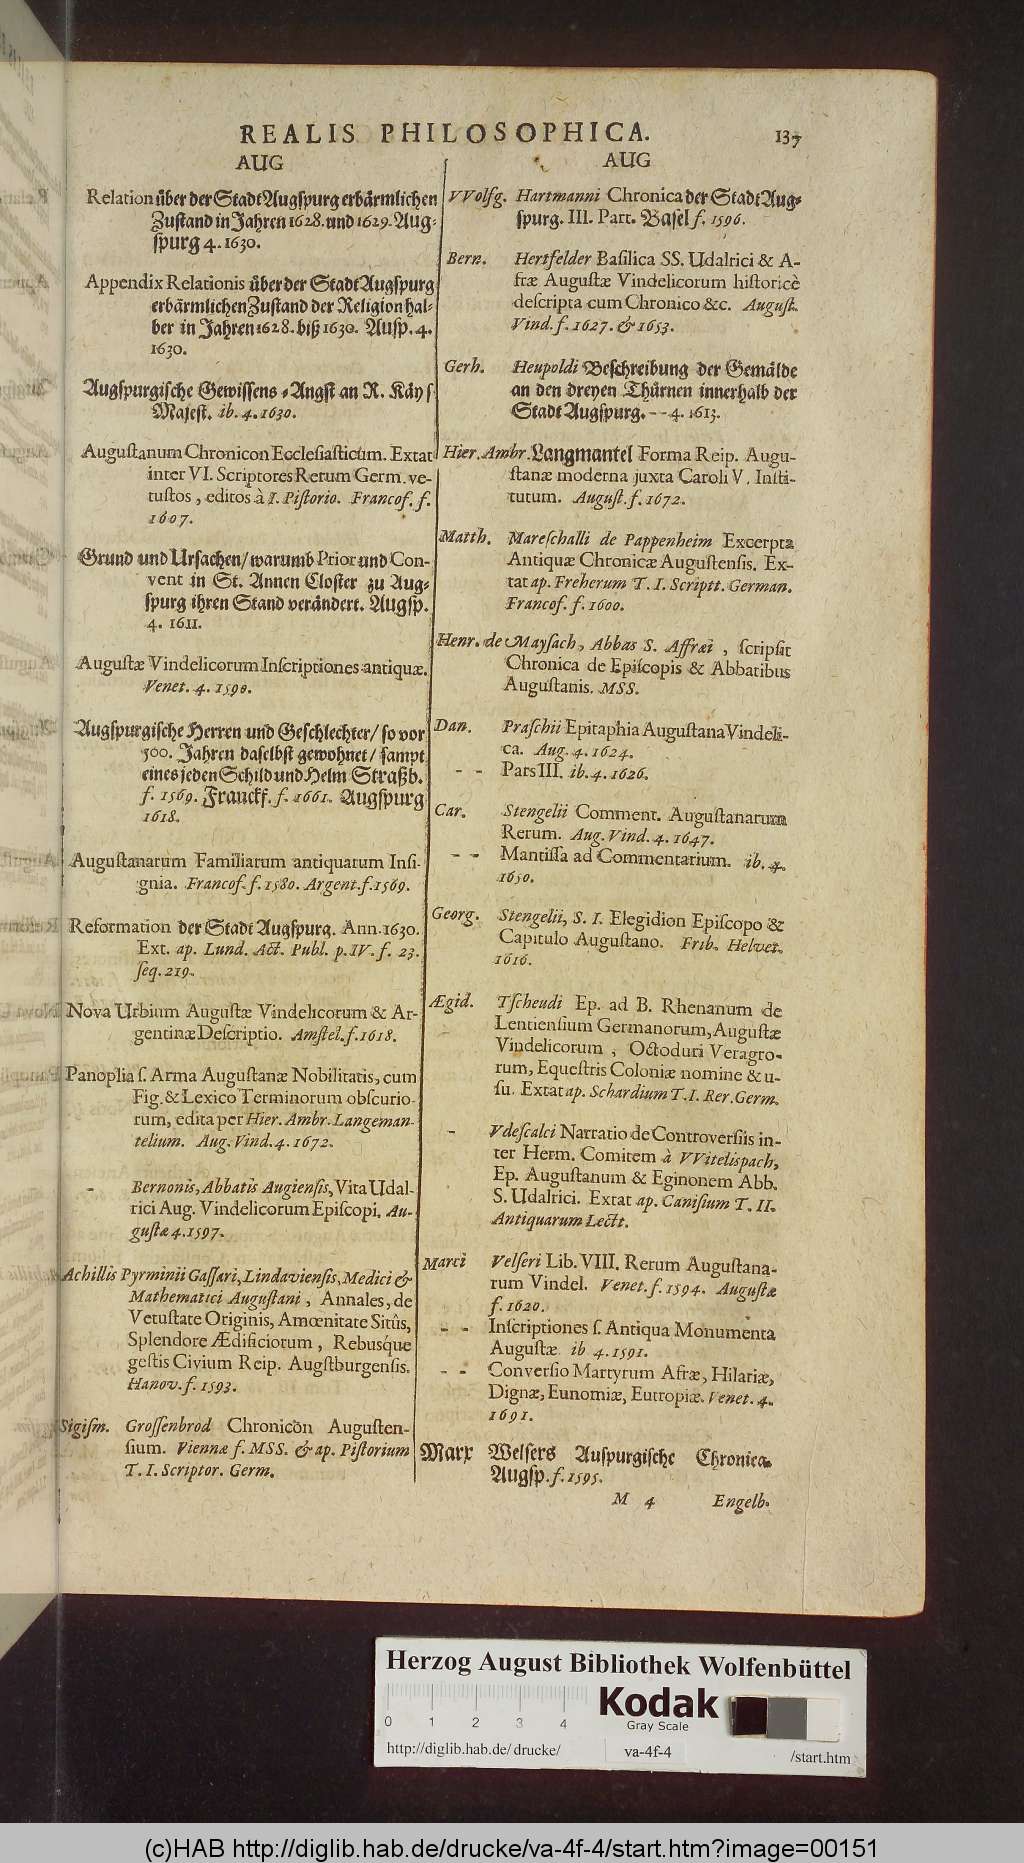 REALIS PHILOSOPHICA. 137
AUG
Relation über der Stadt Augſpurg erbärmlichen
Zuſtand in Jahren 1628. und 1629. Aug-
ſpurg 4. 1630.
Appendix Relationis über der Stadt Augſpurg
erbärmlichen Zuſtand der Religion hal-
ber in Jahren 1628. biß 1630. Auſp. 4.
1630.
Augſpurgiſche Gewiſſens-Angſt an R. Käyſ
Majeſt. ib. 4. 1630.
Auguſtanum Chronicon Eccleſiaſticum. Extat
inter VI. Scriptores Rerum Germ. ve-
tuſtos, editos à I. Piſtorio. Francof. f.
1607.
Grund und Urſachen/ warumb Prior und Con-
vent in St. Annen Cloſter zu Aug-
ſpurg ihren Stand verändert. Augſp.
4. 1611.
Auguſtæ Vindelicorum Inſcriptiones antiquæ.
Venet. 4. 1590.
Augſpurgiſche Herren und Geſchlechter/ ſo vor
500. Jahren daſelbſt gewohnet/ ſampt
eines jeden Schild und Helm Straßb.
f. 1569. Franckf. f. 1661. Augſpurg
1618.
Auguſtanarum Familiarum antiquarum Inſi-
gnia. Francof. f. 1580. Argent. f. 1569.
Reformation der Stadt Augſpurg. Ann. 1630.
Ext. ap. Lund. Act. Publ. p. IV. f. 23.
ſeq. 219.
Nova Urbium Auguſtæ Vindelicorum & Ar-
gentinæ Deſcriptio. Amſtel. f. 1618.
Panoplia ſ. Arma Auguſtanæ Nobilitatis, cum
Fig. & Lexico Terminorum obſcurio-
rum, edita per Hier. Ambr. Langeman-
telium. Aug. Vind. 4. 1672.
- Bernonis, Abbatis Augienſis, Vita Udal-
rici Aug. Vindelicorum Epiſcopi. Au-
guſtæ 4. 1597.
Achillis Pyrminii Gaſſari, Lindavienſis, Medici &
Mathematici Auguſtani, Annales, de
Vetuſtate Originis, Amœnitate Sitûs,
Splendore Ædificiorum, Rebusque
geſtis Civium Reip. Augſtburgenſis.
Hanov. f. 1593.
Sigiſm. Groſſenbrod Chronicon Auguſten-
ſium. Viennæ f. MSS. & ap. Piſtorium
T. I. Scriptor. Germ.
AUG
VVolfg. Hartmanni Chronica der Stadt Aug-
ſpurg. III. Part. Baſel f. 1596.
Bern. Hertfelder Baſilica SS. Udalrici & A-
fræ Auguſtæ Vindelicorum hiſtoricè
deſcripta cum Chronico &c. Auguſt.
Vind. f. 1627. & 1653.
Gerh. Heupoldi Beſchreibung der Gemälde
an den dreyen Thürnen innerhalb der
Stadt Augſpurg. -- 4. 1613.
Hier. Ambr. Langmantel Forma Reip. Augu-
ſtanæ moderna juxta Caroli V. Inſti-
tutum. Auguſt. f. 1672.
Matth. Mareſchalli de Pappenheim Excerpta
Antiquæ Chronicæ Auguſtenſis. Ex-
tat ap. Freherum T. I. Scriptt. German.
Francof. f. 1600.
Henr. de Mayſach, Abbas S. Affræi, ſcripſit
Chronica de Epiſcopis & Abbatibus
Auguſtanis. MSS.
Dan. Praſchii Epitaphia Auguſtana Vindeli-
ca. Aug. 4. 1624.
- - Pars III. ib. 4. 1626.
Car. Stengelii Comment. Auguſtanarum
Rerum. Aug. Vind. 4. 1647.
- - Mantiſſa ad Commentarium. ib. 4.
1650.
Georg. Stengelii, S. I. Elegidion Epiſcopo &
Capitulo Auguſtano. Frib. Helvet.
1616.
Ægid. Tſcheudi Ep. ad B. Rhenanum de
Lentienſium Germanorum, Auguſtæ
Vindelicorum, Octoduri Veragro-
rum, Equeſtris Coloniæ nomine & u-
ſu. Extat ap. Schardium T. I. Rer. Germ.
- Vdeſcalci Narratio de Controverſiis in-
ter Herm. Comitem à VVitelispach,
Ep. Auguſtanum & Eginonem Abb.
S. Udalrici. Extat ap. Caniſium T. II.
Antiquarum Lectt.
Marci Velſeri Lib. VIII. Rerum Auguſtana-
rum Vindel. Venet. f. 1594. Auguſtæ
f. 1620.
- - Inſcriptiones ſ. Antiqua Monumenta
Auguſtæ ib 4. 1591.
- - Converſio Martyrum Afræ, Hilariæ,
Dignæ, Eunomiæ, Eutropiæ. Venet. 4.
1691.
Marx Welſers Auſpurgiſche Chronica.
Augſp. f. 1595.
M 4 Engelb.
Herzog August Bibliothek Wolfenbüttel
0 1 2 3 4
Kodak
Gray Scale
http://diglib.hab.de/ drucke/ va-4f-4 /start.htm
(c)HAB http://diglib.hab.de/drucke/va-4f-4/start.htm?image=00151